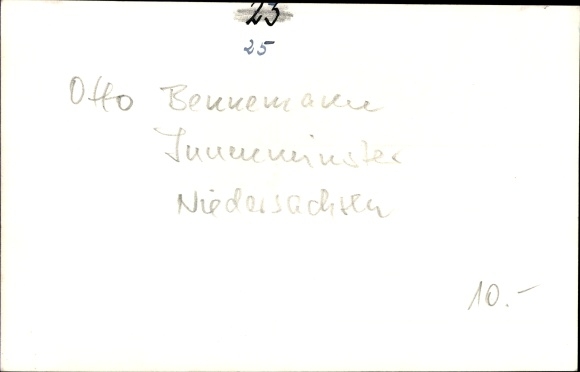 23
25
Otto Bennemann
Innenminster
Niedersachsen
10.-